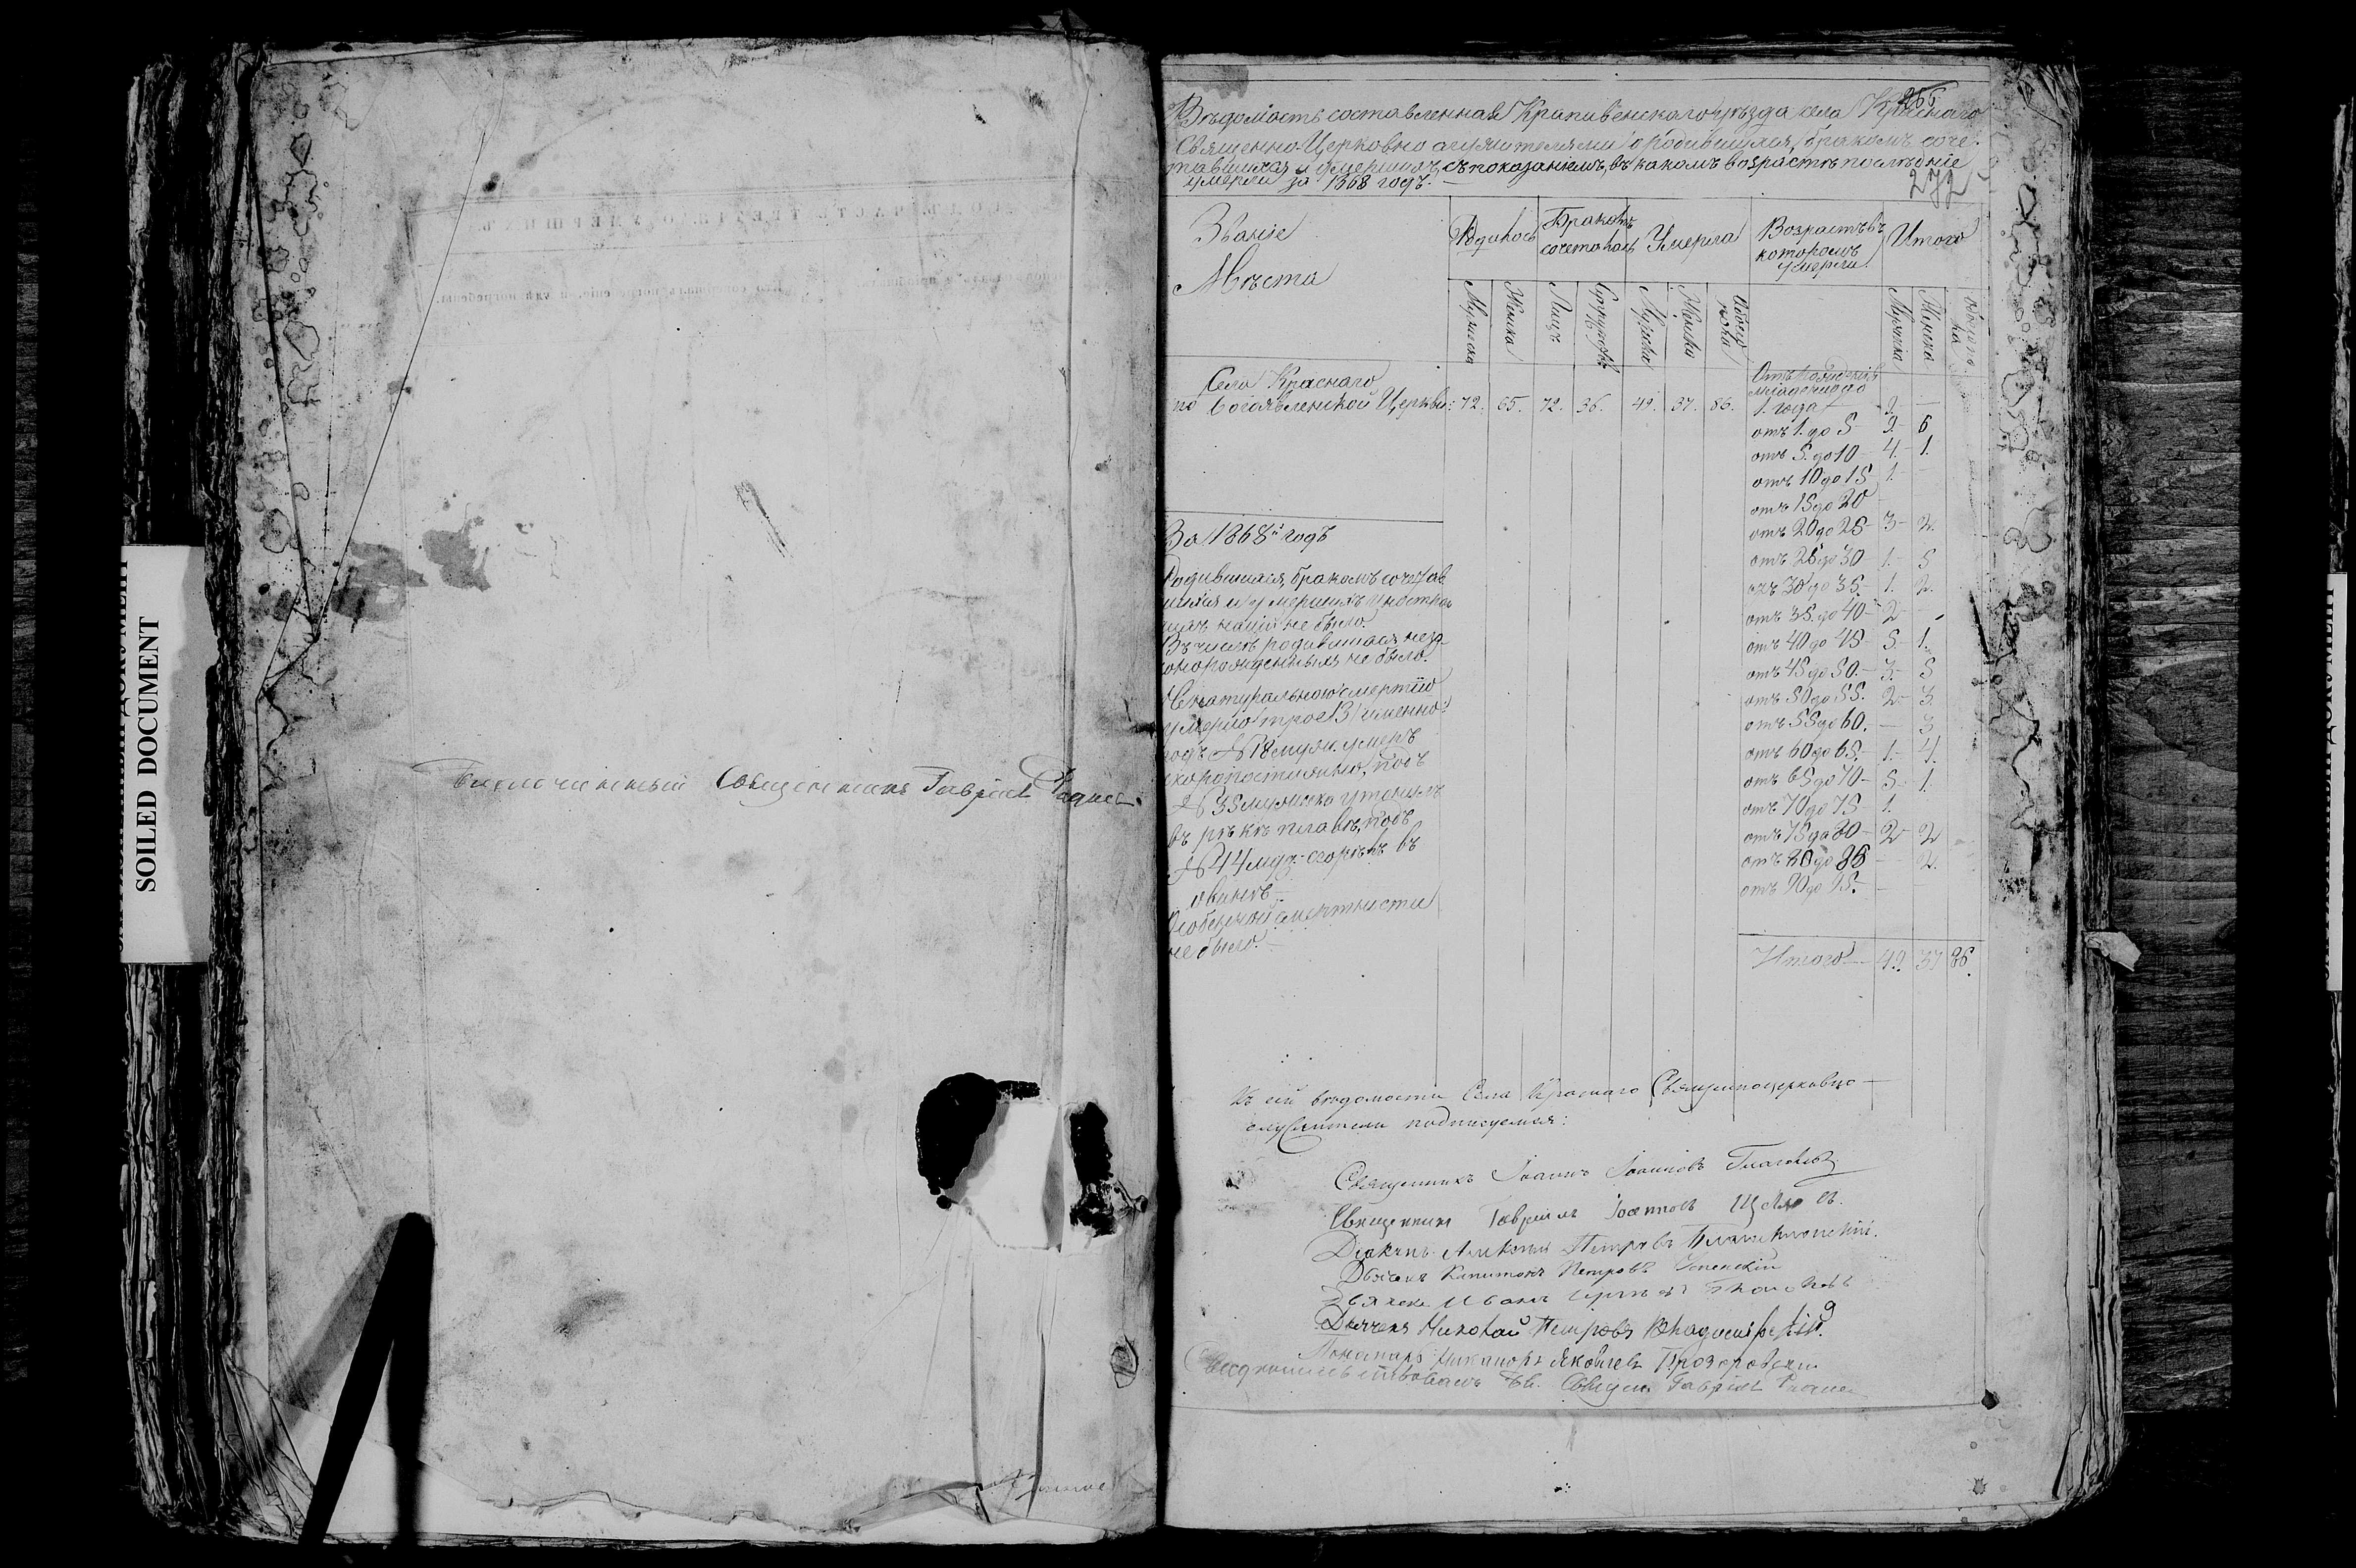 SOILED DOCUMENT
Благочинный Священникъ Гавріилъ
265
Вѣдомость составленная Крапивенскаго уѣзда села Краснаго
Священно Церковно служителями о родившихся, бракомъ соче-
тавшихся и умершихъ, съ показаніемъ, въ какомъ возрастѣ послѣдніе
умерли за 1868 годъ.
272
Званіе Мѣста
Родилось
Бракомъ сочеталось
Умерло
Возрастъ въ которомъ умерли.
Итого
Мужеска
Женска
Лицъ
Супружествъ
Мужеска
Женска
Обоего пола
Мужеска
Женска
Обоего
Села Краснаго
по Богоявленской Церкви: 72. 65. 72. 36. 49. 37. 86.
Отъ рожденія
младенца до
1. года 9 —
отъ 1. до 5 9 6
отъ 5. до 10 4. 1.
отъ 10 до 15 1.
отъ 15 до 20
отъ 20 до 25 3 2.
отъ 25 до 30 1. 5
отъ 30 до 35 1. 2.
отъ 35. до 40 2
отъ 40 до 45 5 1.
отъ 45 до 50. 3. 5
отъ 50 до 55. 2 3.
отъ 55 до 60. — 3
отъ 60 до 65. 1. 4.
отъ 65 до 70 5 1.
отъ 70 до 75 1.
отъ 75 до 80 2 2
отъ 80 до 85 — 2.
отъ 90 до 95.
Итого 49. 37 86.
За 1868й годъ
Родившихся, бракомъ сочетав
шихся и умершихъ иностран
ныхъ націй не было.
Въ числѣ родившихся неза-
коннорожденныхъ не было.
Ненатуральною смертію
умерло трое 3/ именно:
подъ № 18 муж. умеръ
скоропостижно, подъ
№ 35 мужеска утонулъ
въ рѣкѣ Плавѣ, подъ
№ 44 млад. сгорѣлъ въ
овинѣ.
Особенной смертности
не было.
Къ сей вѣдомости Села Краснаго Священноцерковно-
служители подписуемся:
Священникъ Іоаннъ Іоанновъ Глаголевъ
Священникъ Гавріилъ Іоанновъ
Діаконъ Алексѣй Петровъ
Дьячекъ Капитонъ Петровъ Успенскій
Дьячекъ Иванъ
Дьячекъ Николай Петровъ
Пономарь Никаноръ Яковлевъ Прозоровскій
Свидѣтельствовалъ Бл. Священ. Гавріилъ